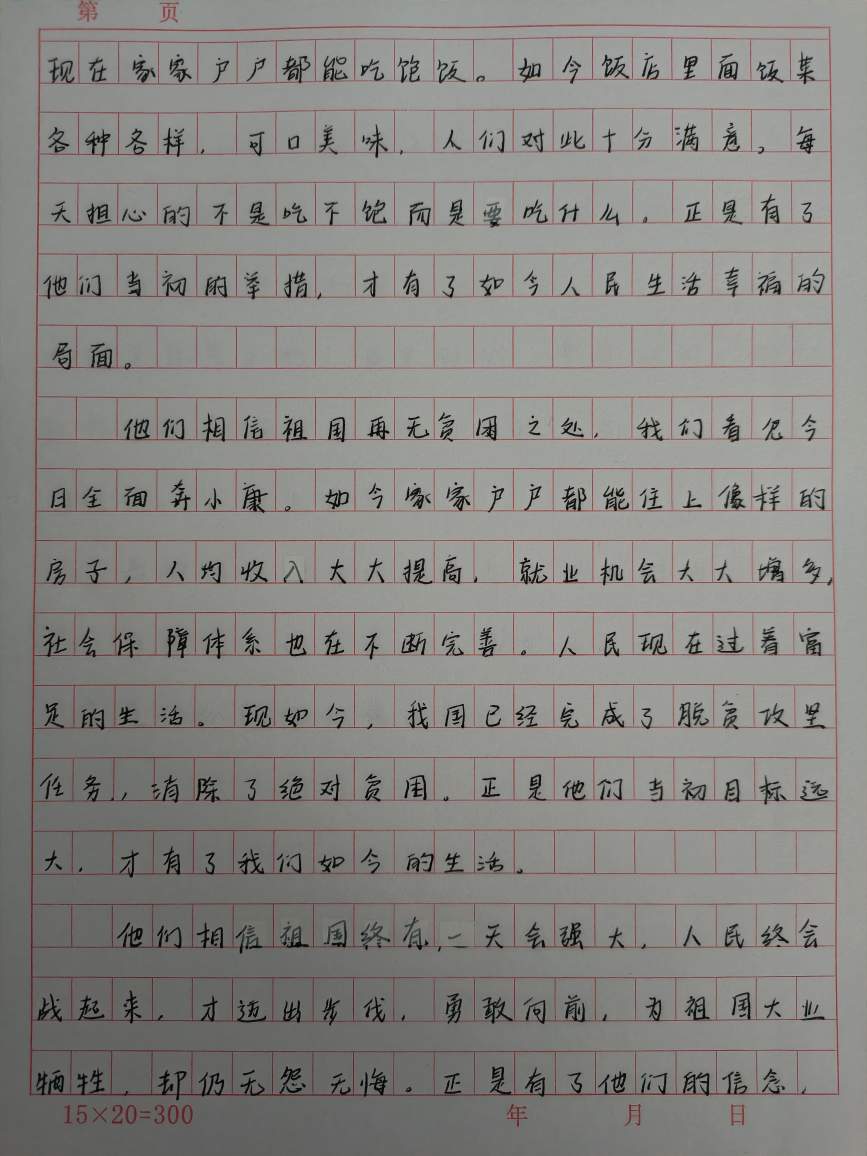 第 页
现在家家户户都能吃饱饭。如今饭店里面饭菜
各种各样，可口美味，人们对此十分满意，每
天担心的不是吃不饱而是要吃什么。正是有了
他们当初的举措，才有了如今人民生活幸福的
局面。
他们相信祖国再无贫困之处，我们看见今
日全面奔小康。如今家家户户都能住上像样的
房子，人均收入大大提高，就业机会大大增多，
社会保障体系也在不断完善。人民现在过着富
足的生活。现如今，我国已经完成了脱贫攻坚
任务，消除了绝对贫困。正是他们当初目标远
大，才有了我们如今的生活。
他们相信祖国终有一天会强大，人民终会
战起来，才迈出步伐，勇敢向前，为祖国大业
牺牲，却仍无怨无悔。正是有了他们的信念，
15×20=300 年 月 日